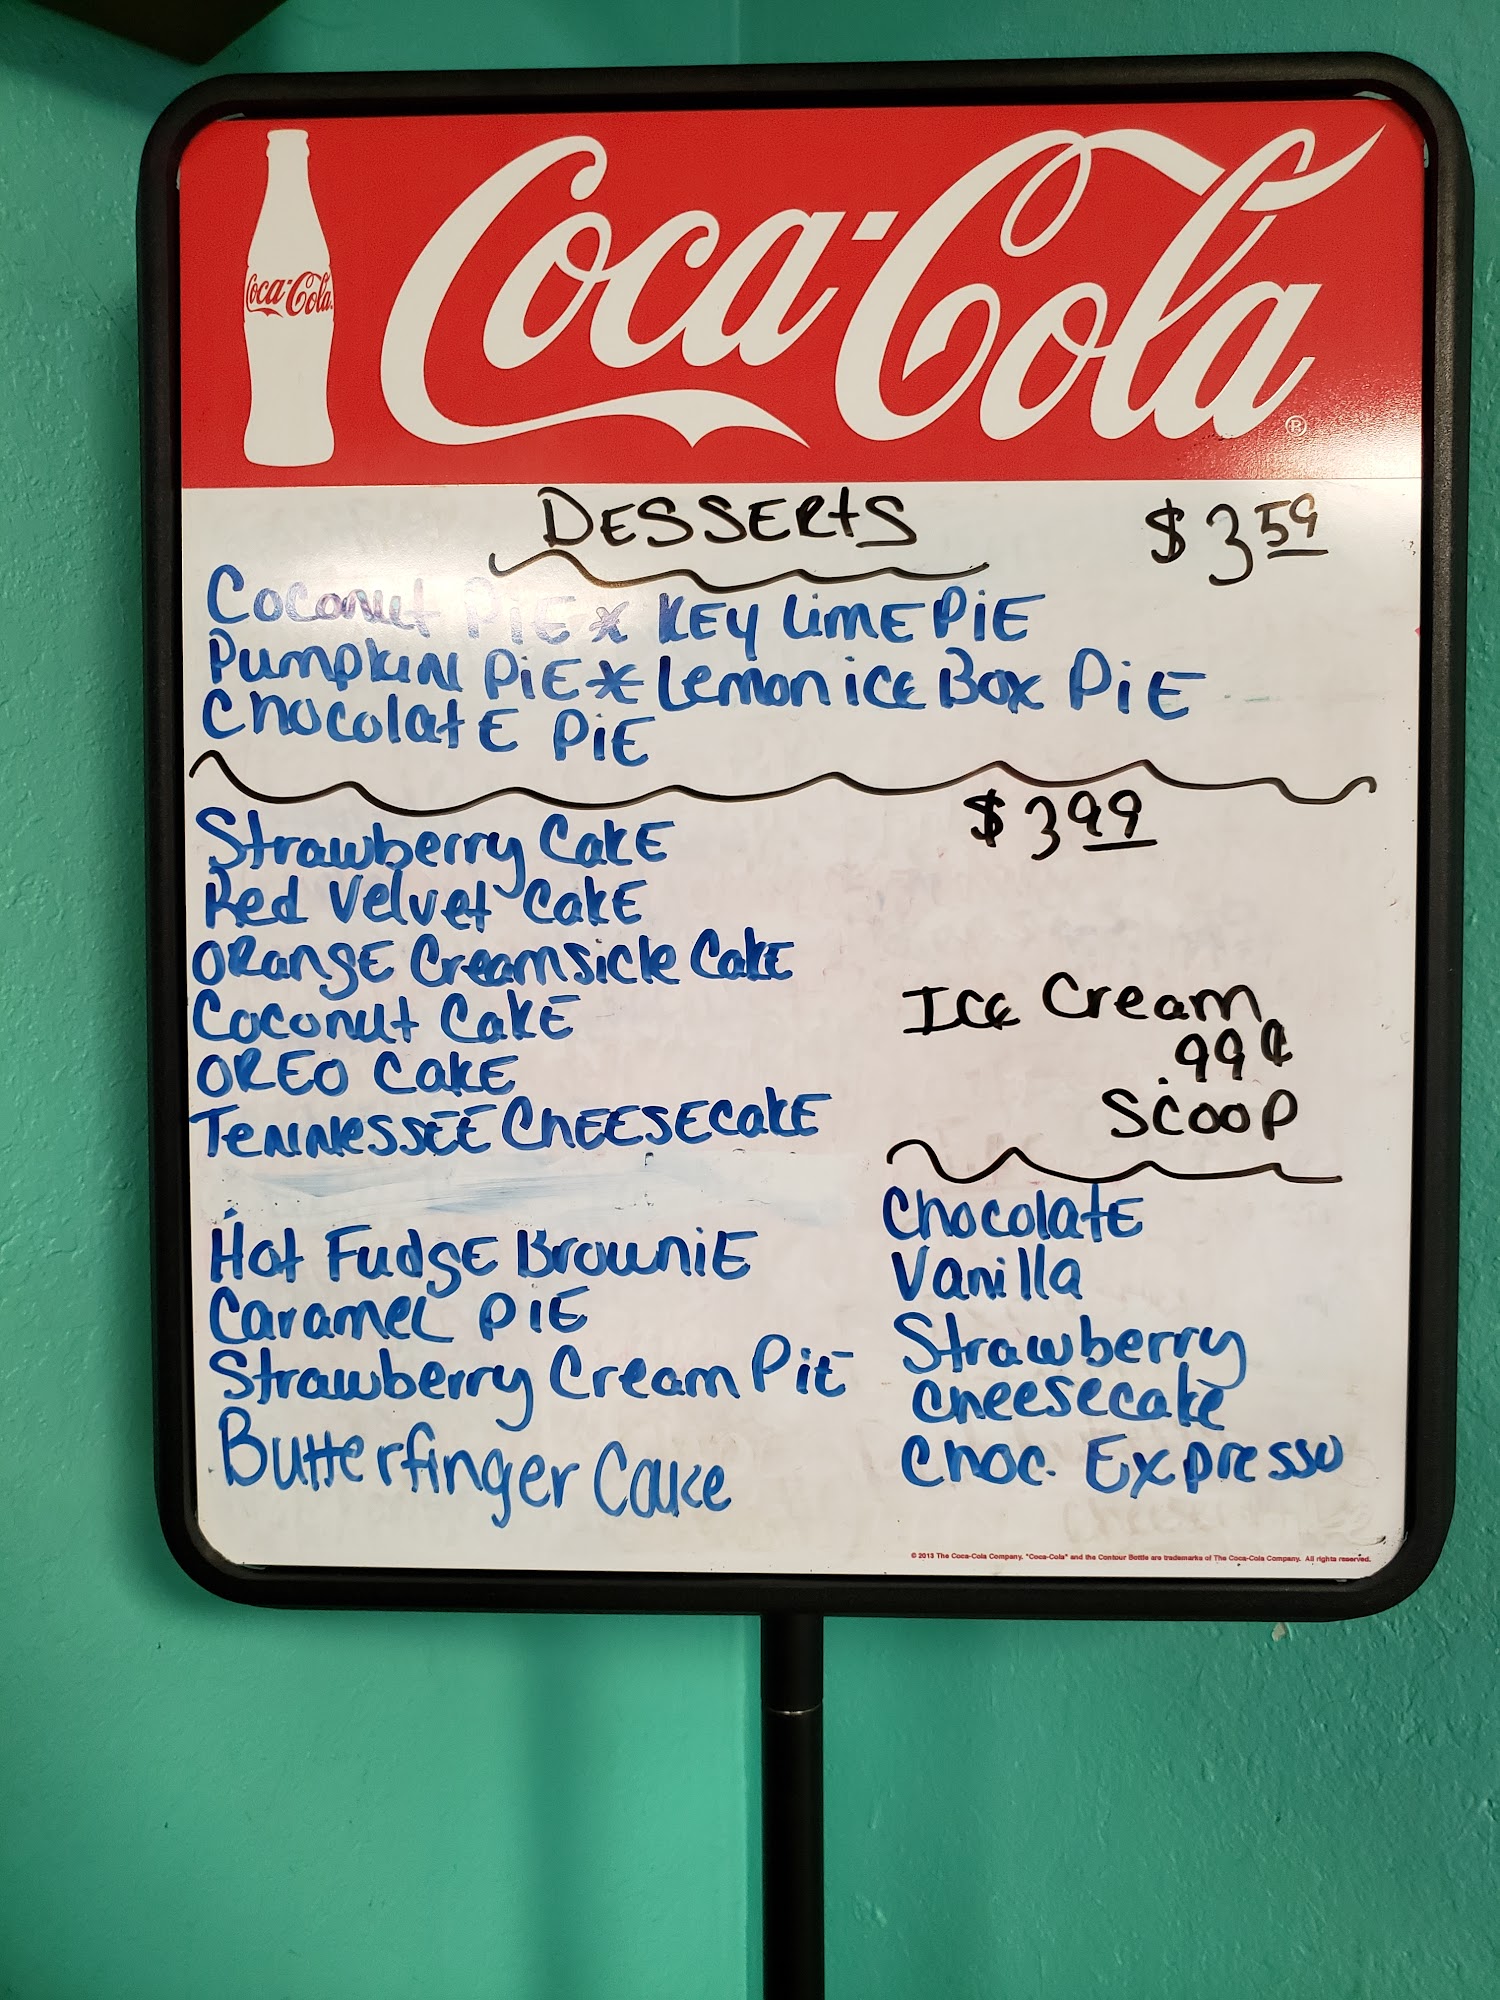 Coca-Cola
Coca-Cola®
DESSERtS $3.59
Coconut PiE * KEy LimE PiE
Pumpkin PiE * Lemon icE Box PiE
ChocolatE PiE
$3.99
Strawberry CakE
Red Velvet CakE
ORangE Creamsicle CakE
Coconut CakE
OREO CakE
TENNESSEE CHEESEcakE
Ice Cream
.99¢
Scoop
Hot FudgE BrowniE
CaramEL PiE
Strawberry Cream PiE
Butterfinger Cake
ChocolatE
Vanilla
Strawberry
cheesecake
Choc. Expresso
© 2013 The Coca-Cola Company. "Coca-Cola" and the Contour Bottle are trademarks of The Coca-Cola Company. All rights reserved.